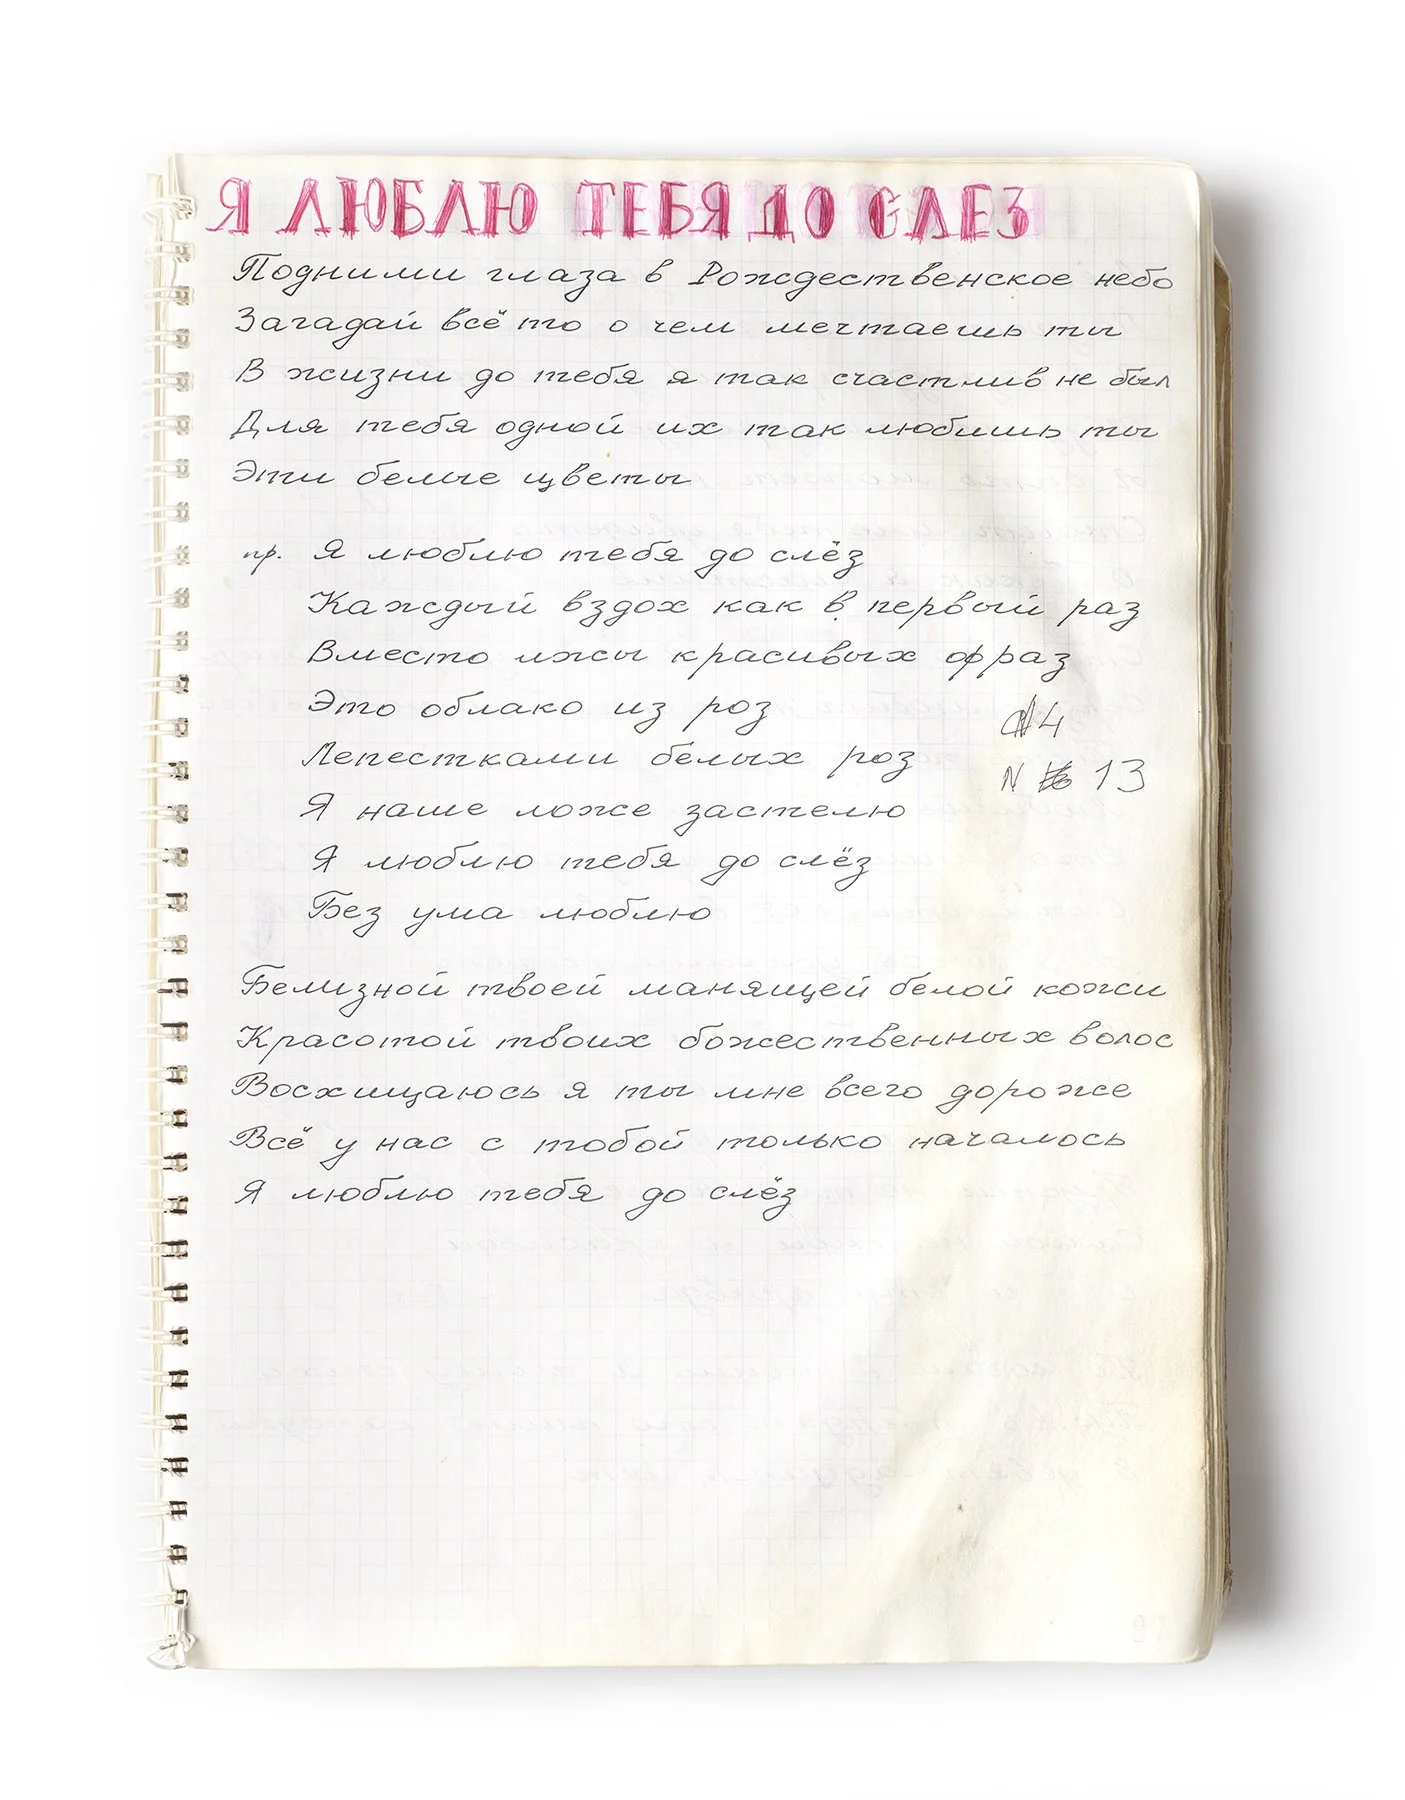 Я ЛЮБЛЮ ТЕБЯ ДО СЛЕЗ
Подними глаза в Рождественское небо
Загадай всё то о чем мечтаешь ты
В жизни до тебя я так счастлив не был
Для тебя одной их так любишь ты
Эти белые цветы
пр. Я люблю тебя до слёз
Каждый вздох как в первый раз
Вместо лжы красивых фраз
Это облако из роз
Лепестками белых роз
Я наше ложе застелю
Я люблю тебя до слёз
Без ума люблю
4
N 13
Белизной твоей манящей белой кожи
Красотой твоих божественных волос
Восхищаюсь я ты мне всего дороже
Всё у нас с тобой только началось
Я люблю тебя до слёз